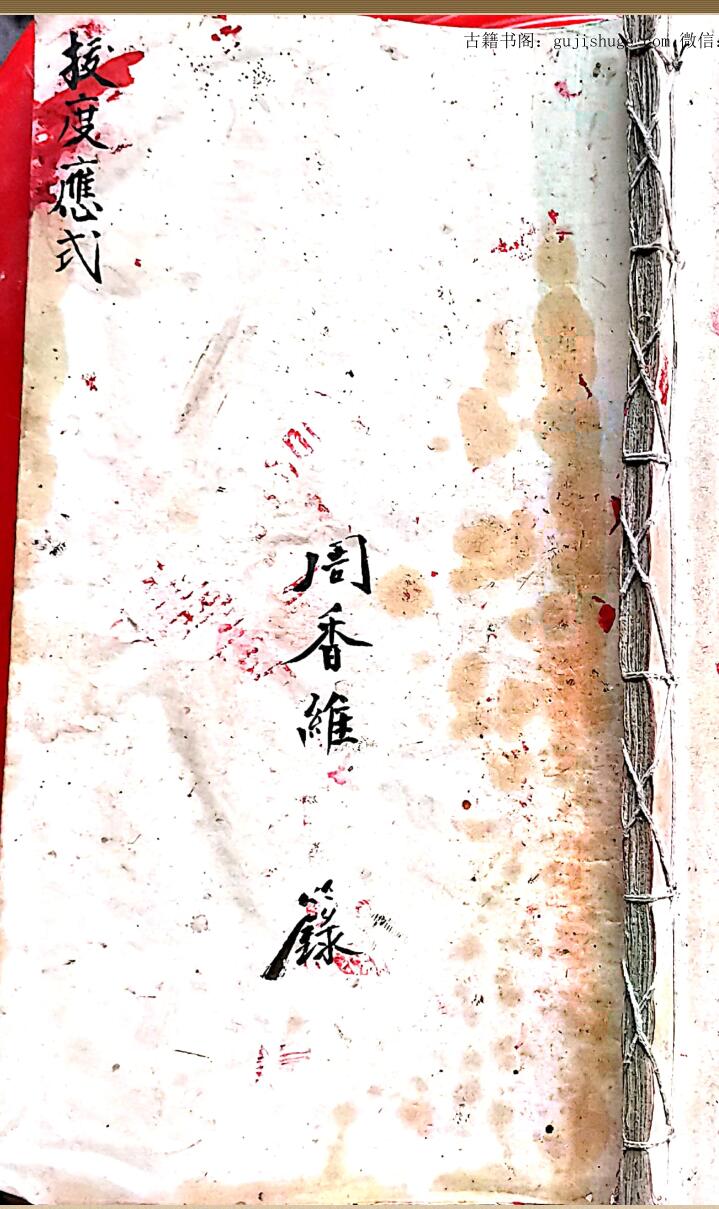 古籍书阁：gujishuge.com 微信：
拔度應式
周香維 籙